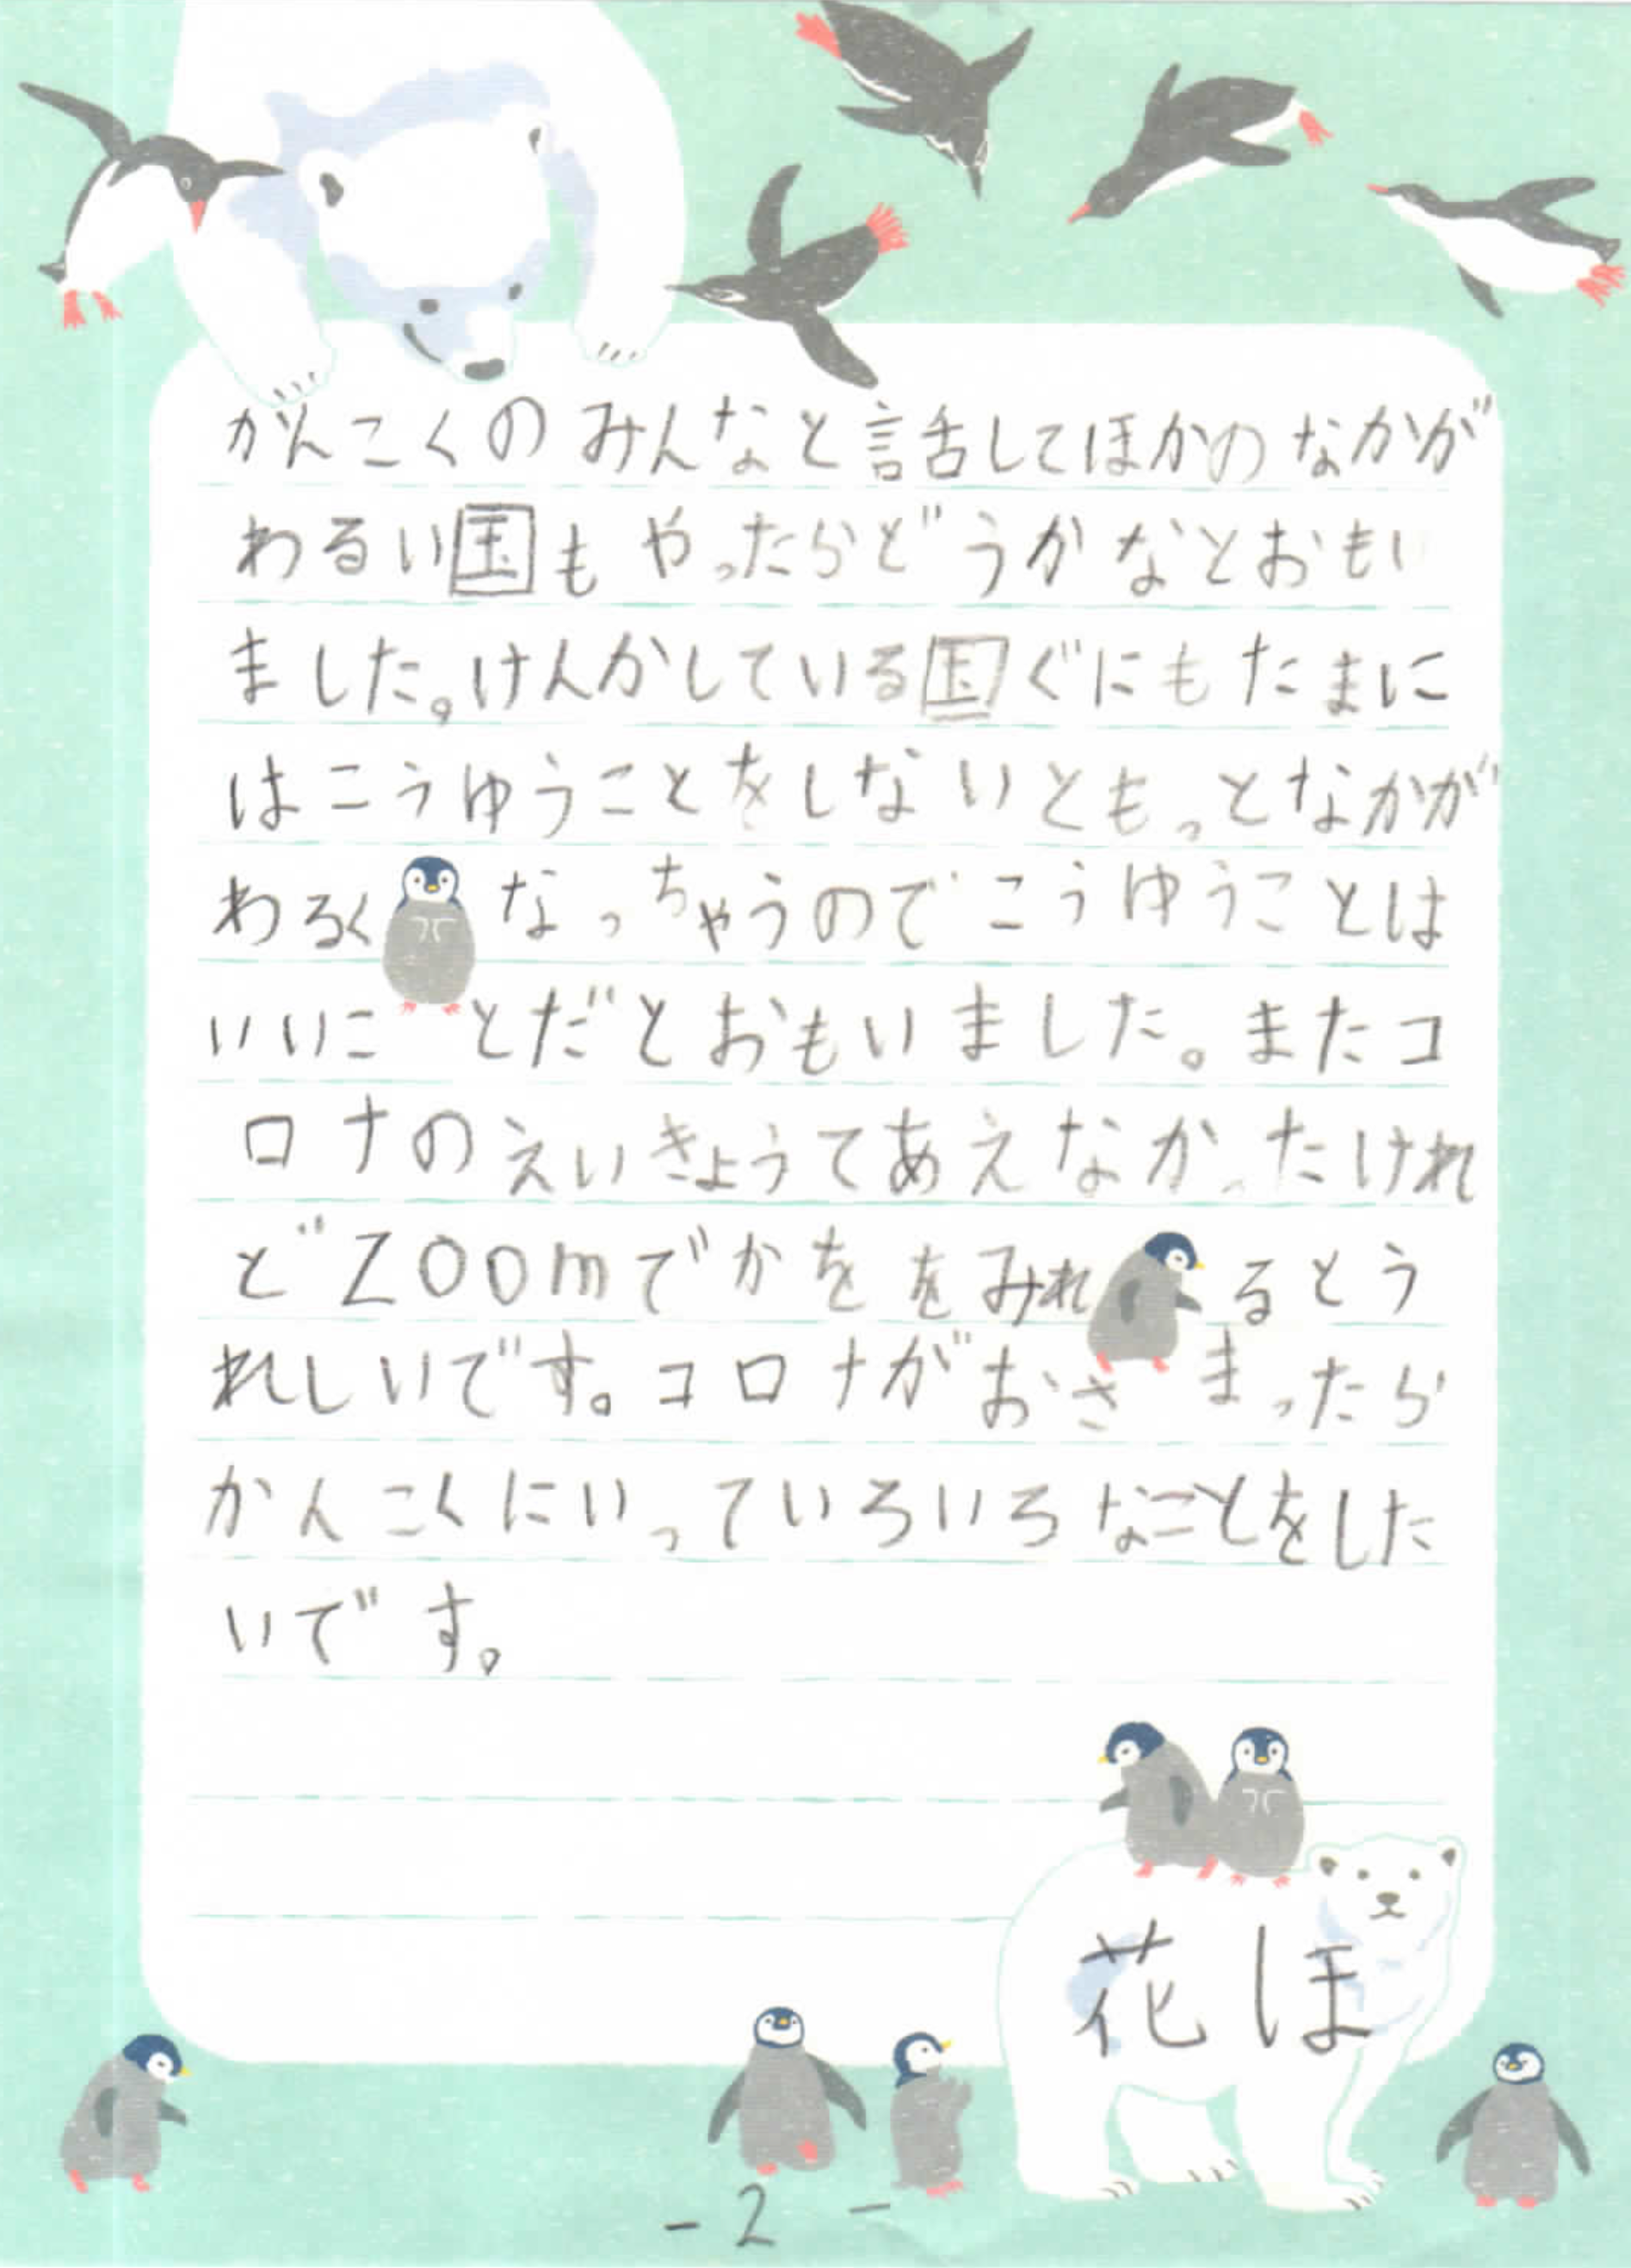 がんこくのみんなと話してほかのなかが
わるい国もやったらどうかなとおもい
ました。けんかしている国ぐにもたまに
はこうゆうことをしないともっとなかが
わるくなっちゃうのでこうゆうことは
いいことだとおもいました。またコ
ロナのえいきょうてあえなかったけれ
どZoomでかををみれるとう
れしいです。コロナがおさまったら
かんこくにいっていろいろなことをした
いです。
花ほ
-2-